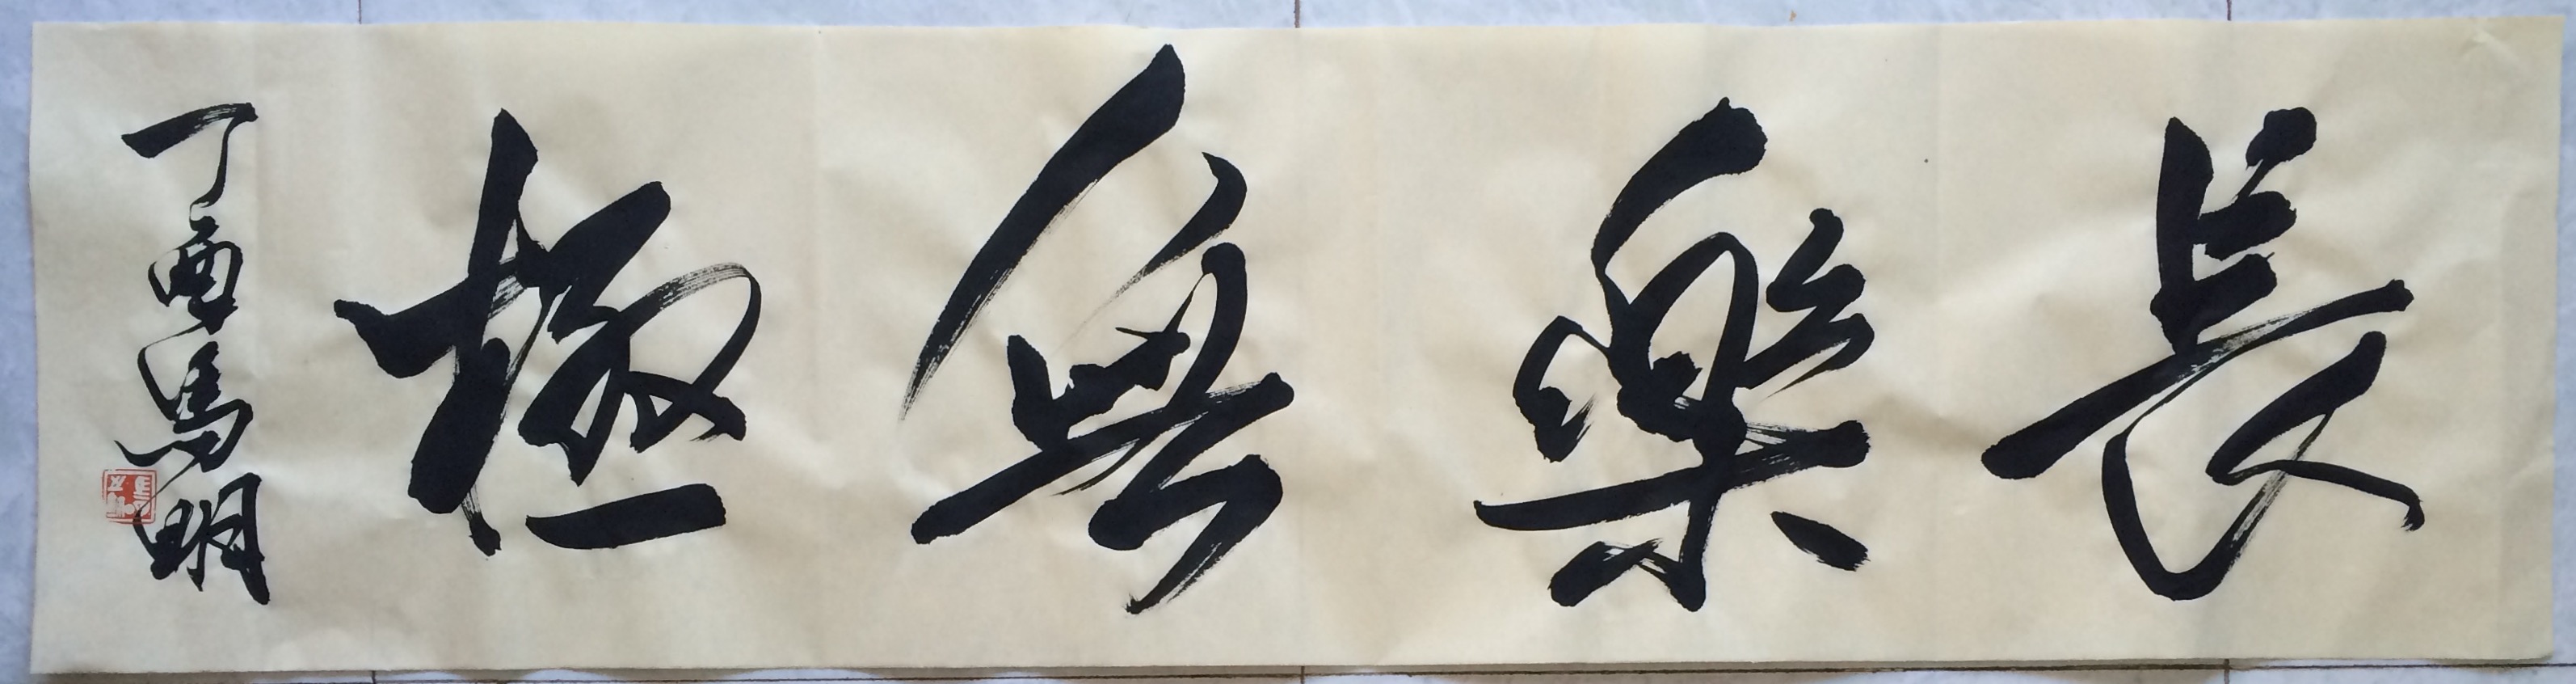 長樂無極
丁酉馬明